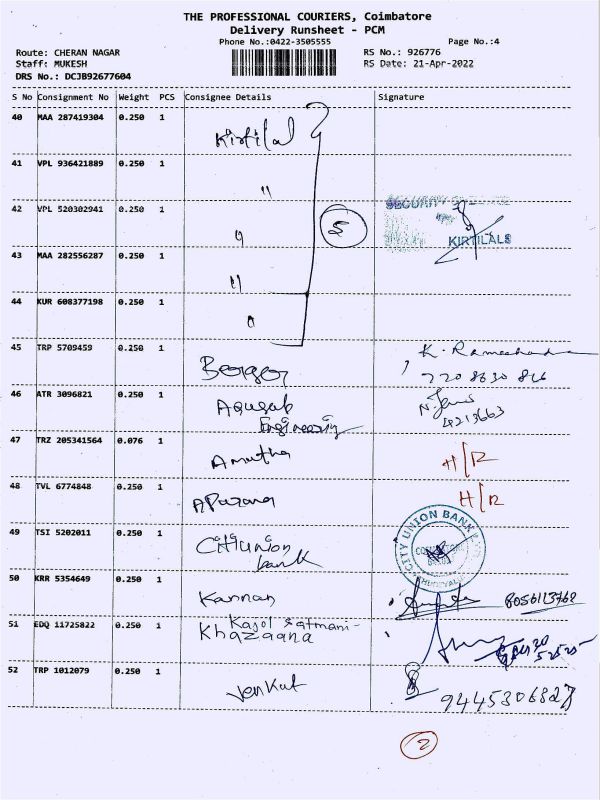 THE PROFESSIONAL COURIERS, Coimbatore
Delivery Runsheet - PCM
Phone No.:0422-3505555 Page No.:4
Route: CHERAN NAGAR RS No.: 926776
Staff: MUKESH RS Date: 21-Apr-2022
DRS No.: DCJB92677604
S No Consignment No Weight PCS Consignee Details Signature
40 MAA 287419304 0.250 1 Kirtilal
41 VPL 936421889 0.250 1 "
SECURITY
42 VPL 520302941 0.250 1 " 5
KIRTILALS
43 MAA 282556287 0.250 1 "
44 KUR 608377198 0.250 1 "
45 TRP 5709459 0.250 1 Berger K. Ramachandra
46 ATR 3096821 0.250 1
Engineering 4213663
47 TRZ 205341564 0.076 1 Amutha H/R
48 TVL 6774848 0.250 1 H/R
CITY UNION BANK
49 TSI 5202011 0.250 1 Citiunion
bank
50 KRR 5354649 0.250 1 Kannan
51 EDQ 11725822 0.250 1 Kajol
Khazaana
52 TRP 1012079 0.250 1 Venkat
9445306327
2